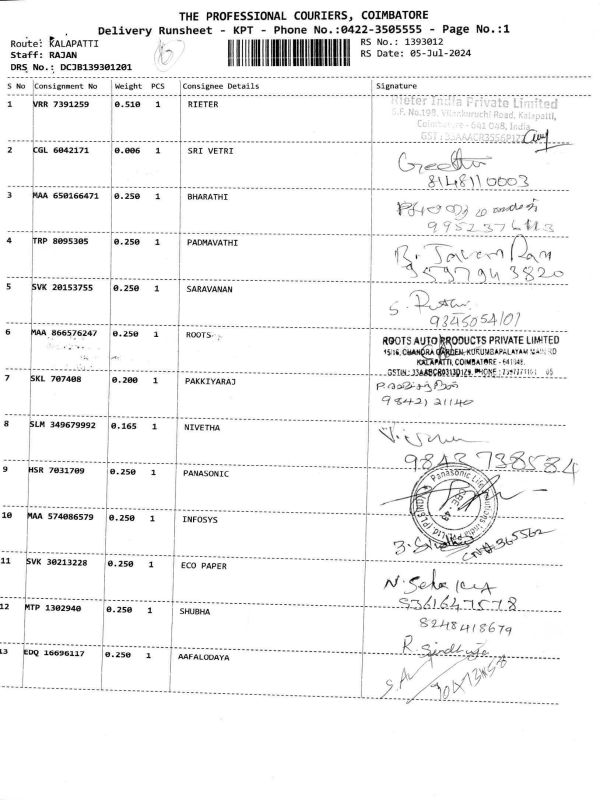 THE PROFESSIONAL COURIERS, COIMBATORE
Delivery Runsheet - KPT - Phone No.:0422-3505555 - Page No.:1
Route: KALAPATTI
Staff: RAJAN
DRS No.: DCJB139301201
RS No.: 1393012
RS Date: 05-Jul-2024
S No Consignment No Weight PCS Consignee Details Signature
1 VRR 7391259 0.510 1 RIETER
Rieter India Private Limited
S.F. No.198, Vilankuruchi Road, Kalapatti,
Coimbatore - 641 048, India
2 CGL 6042171 0.006 1 SRI VETRI
Geetha
8148110003
3 MAA 650166471 0.250 1 BHARATHI
4 TRP 8095305 0.250 1 PADMAVATHI
9597943820
5 SVK 20153755 0.250 1 SARAVANAN
9345054101
6 MAA 866576247 0.250 1 ROOTS
ROOTS AUTO PRODUCTS PRIVATE LIMITED
15/16, CHANDRA GARDEN, KURUMBAPALAYAM MAIN RD
KALAPATTI, COIMBATORE - 641048.
7 SKL 707408 0.200 1 PAKKIYARAJ
9842121140
8 SLM 349679992 0.165 1 NIVETHA
9843738584
9 HSR 7031709 0.250 1 PANASONIC
Panasonic Life
10 MAA 574086579 0.250 1 INFOSYS
365562
11 SVK 30213228 0.250 1 ECO PAPER
9361647578
12 MTP 1302940 0.250 1 SHUBHA
8248418679
R. Sindhuja
13 EDQ 16696117 0.250 1 AAFALODAYA